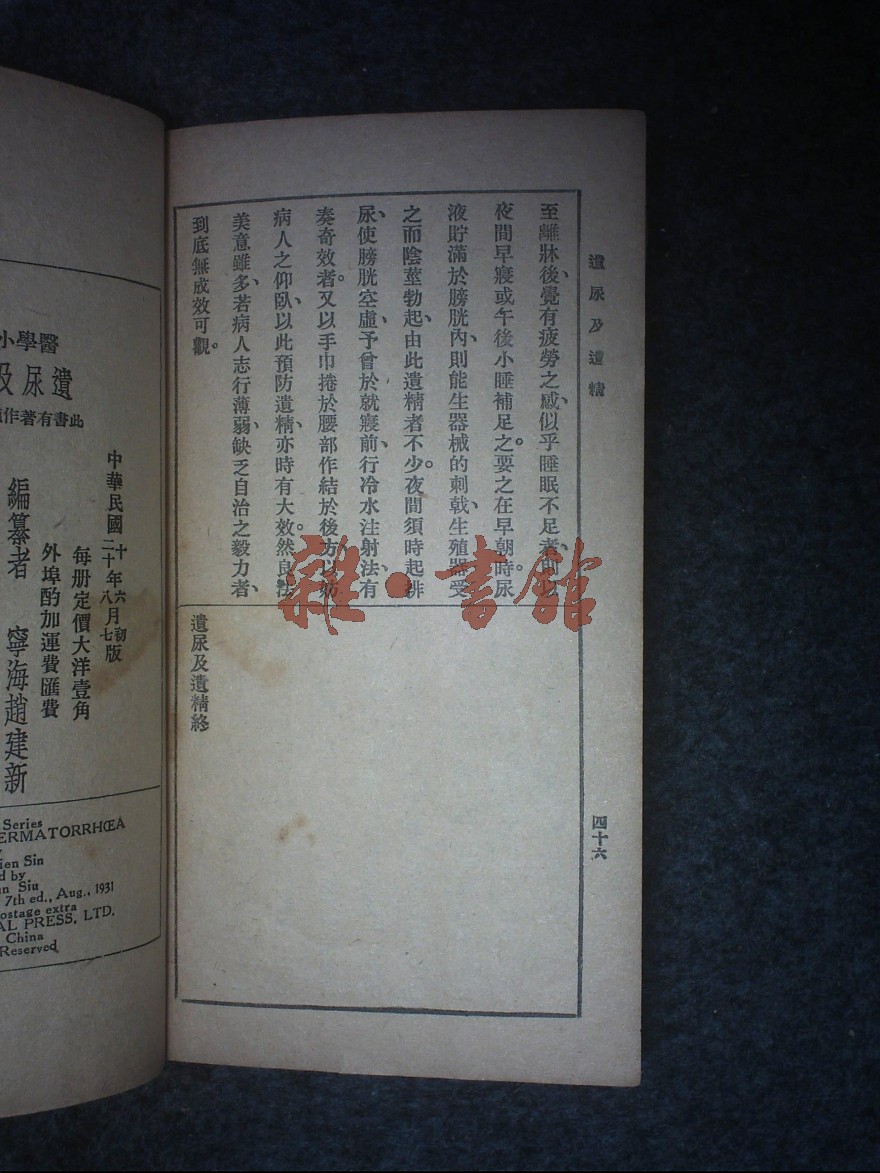 遺尿及遺精
至離牀後、覺有疲勞之感、似乎睡眠不足者、則以
夜間早寢或午後小睡補足之。要之在早朝時、尿
液貯滿於膀胱內、則能生器械的刺戟、生殖器受
之而陰莖勃起、由此遺精者不少。夜間須時起排
尿、使膀胱空虛、予曾於就寢前、行冷水注射法、有
奏奇效者。又以手巾捲於腰部作結於後方以妨
病人之仰臥、以此預防遺精、亦時有大效。然良法
美意雖多、若病人志行薄弱、缺乏自治之毅力者、
到底無成效可觀。
遺尿及遺精終
四十六
雜·書館
醫學小
遺尿及
此書有著作
中華民國
十六初
年月版
二十八七
每册定價大洋壹角
外埠酌加運費匯費
編纂者
寧海趙建新
Series
ERMATORRHŒA
ien Sin
d by
n Siu
7th ed., Aug., 1931
ostage extra
AL PRESS, LTD.
China
Reserved